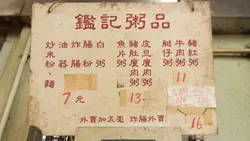 鑑記粥品
炒米粉、麵
油器
炸腸
腸粉
白粥
7元
魚片粥
豬肚瘦肉粥
皮旦瘦肉粥
13.-
艇仔粥
牛肉粥
豬紅粥
11
16
外賣加五毫 炸腸外賣